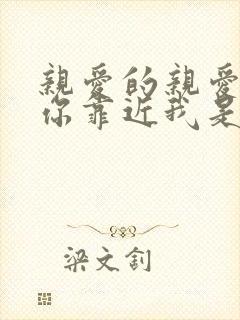 親愛的親愛
你靠近我是
梁文釗